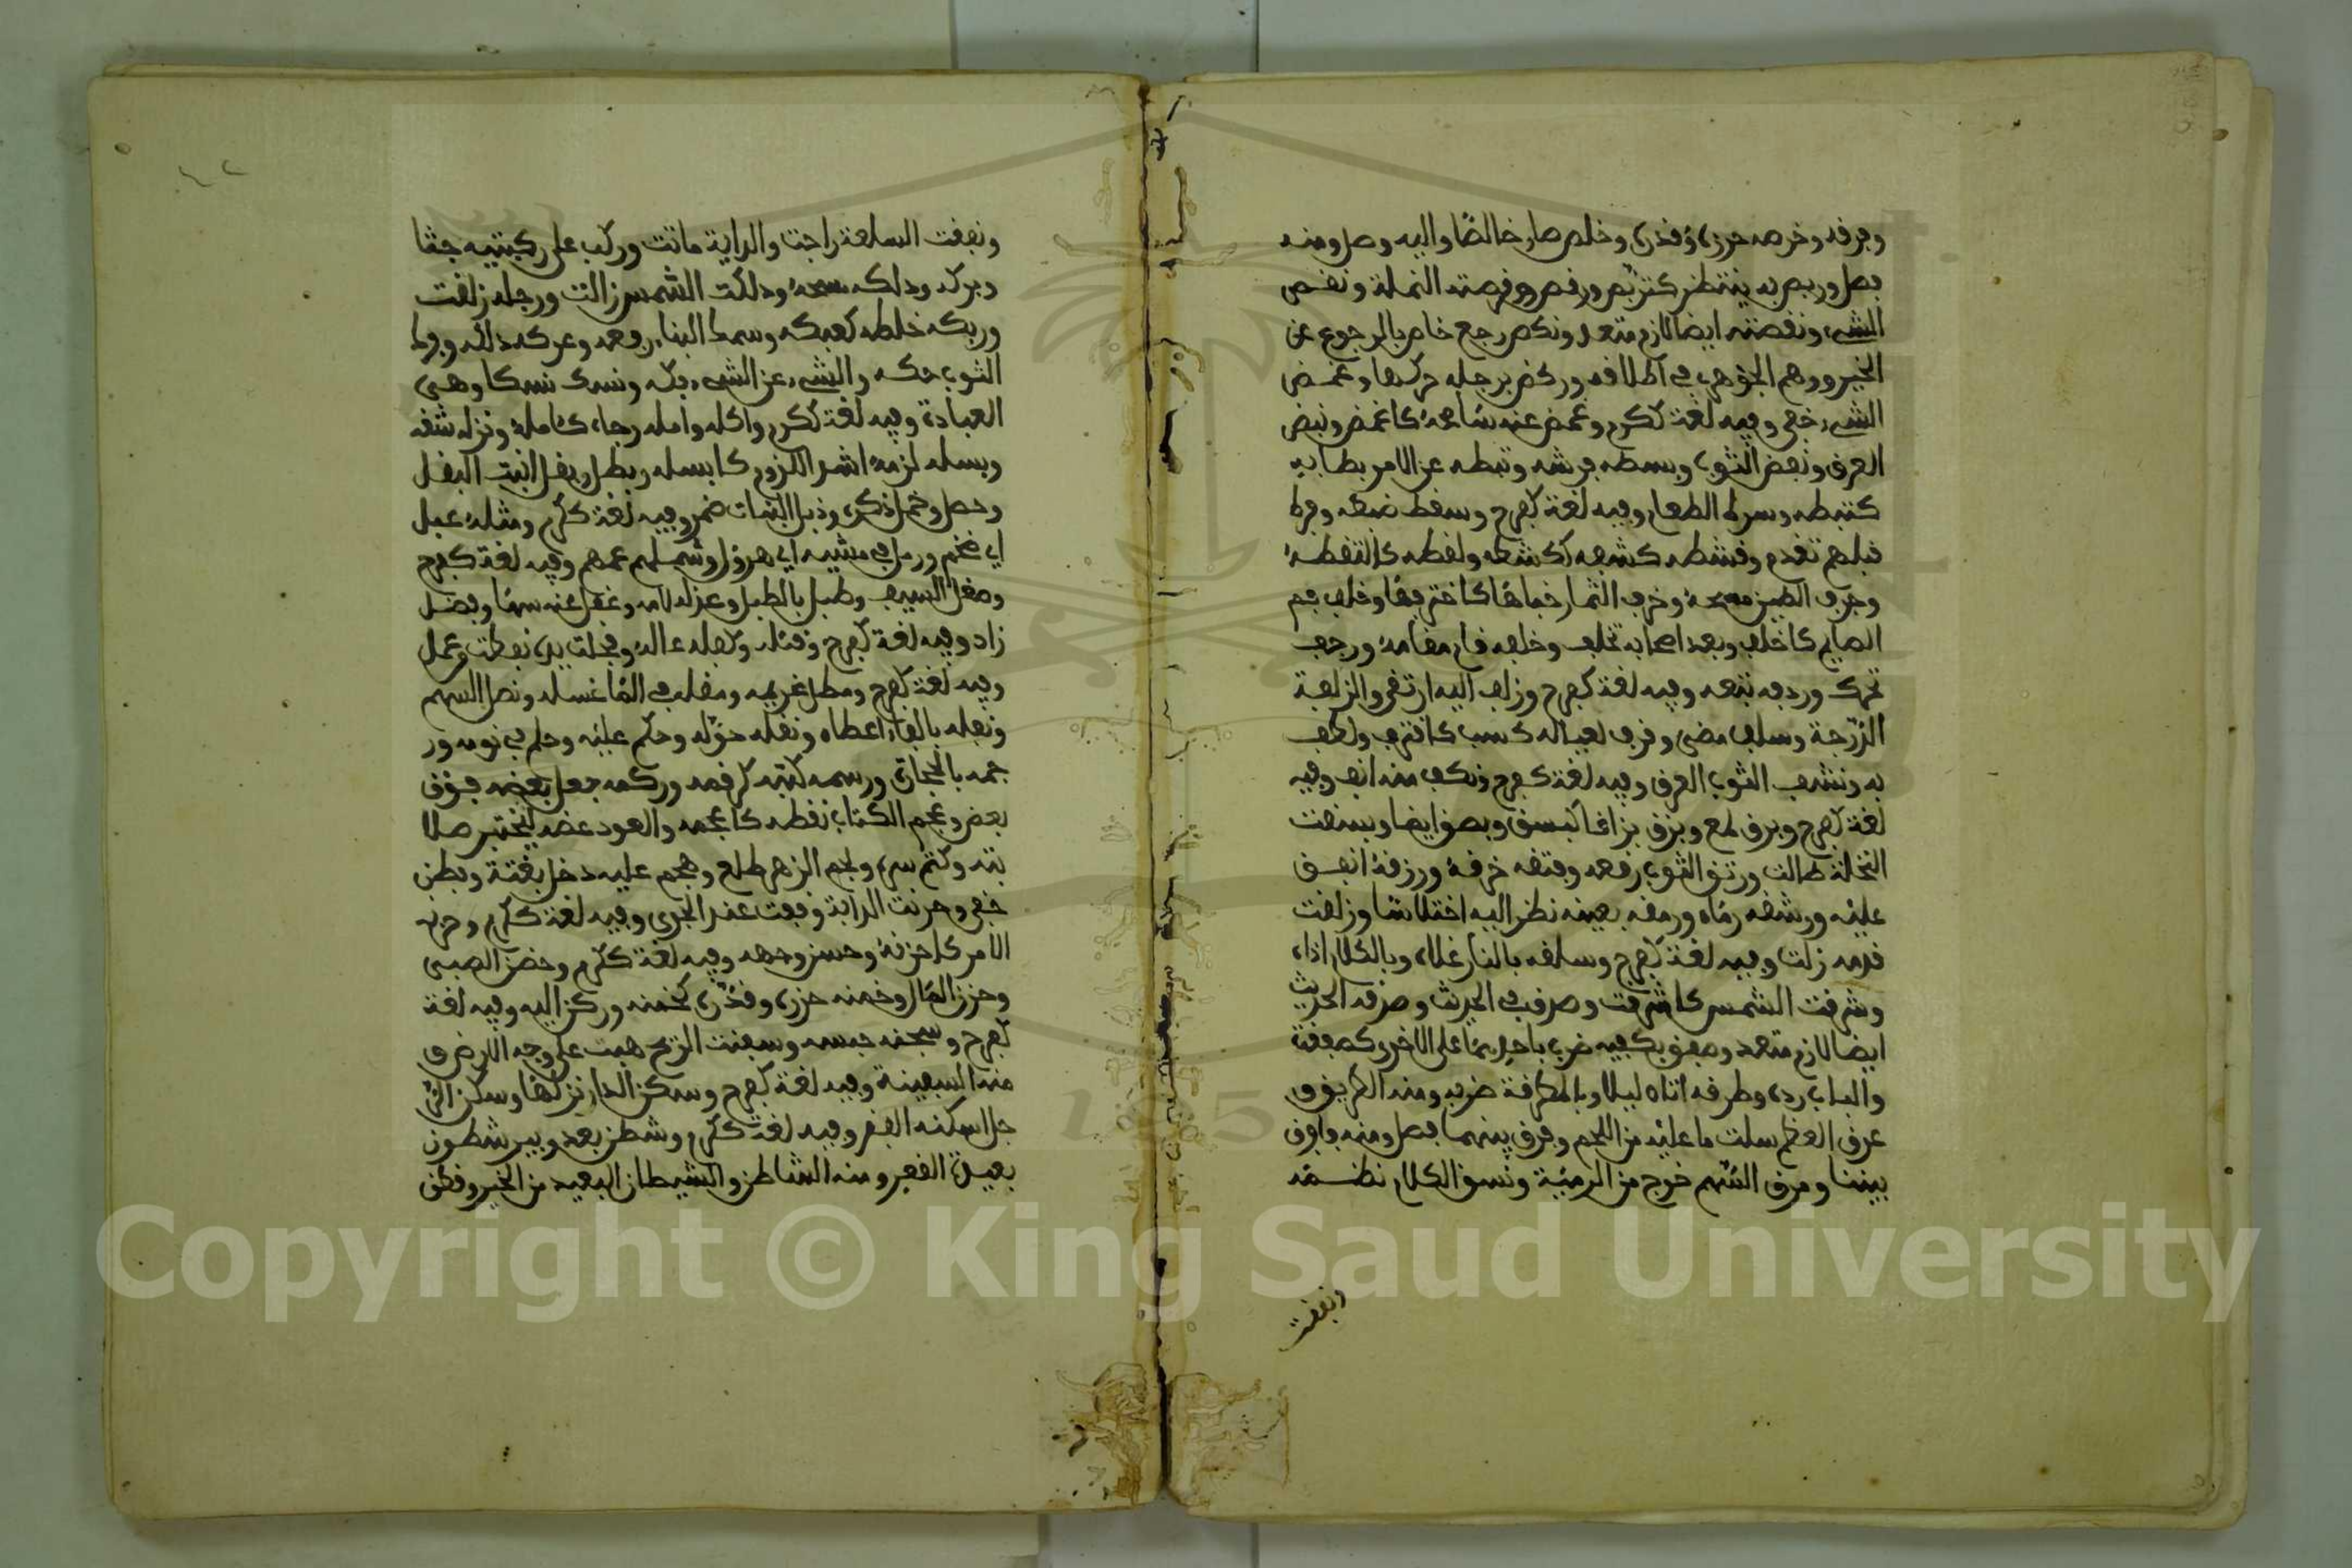 وفرقه وخرصه حزره وقدره وخلص صار خالصا واليه وصل ومنه
فصل وربص به ينتظر كتربص ورقص وقرصته النملة ونقص
الشيء ونقصته ايضا لازم متعد ونكص رجع خاص بالرجوع عن
الخير ووهم الجوهري في اطلاقه وركض برجله حركها وغمض
الشيء خفي وفيه لغة ككرم وغمض عنه سامحه كاغمض ونبض
العرق ونفض الثوب وبسطه فرشه وثبطه عن الامر بطا به
كثبطه وسرط الطعام وفيه لغة كفرح وسقط ضبعه وفرط
قبلهم تقدم وقشطه كشفه ككشطه ولقطه كالتقطه
وجرف الطين مسحه وخرف الثمار خباها كاخترفها وخلف فم
الصايم كاخلف وبعد اصحابه تخلف وخلفه قام مقامه ورجف
تحرك وردفه تبعه وفيه لغة كفرح وزلف اليه ارتقى والزلفة
الدرجة وسلف مضى وقرف لعياله كسب كاقترف ولطف
به ونشف الثوب العرق وفيه لغة كفرح ونكف منه انف وفيه
لغة كفرح وبرق لمع وبزق بزاقا كبسق وبصق ايضا وبسقت
النخلة طالت ورتق الثوب رقعه وفتقه خرقه ورزقه انفق
عليه ورشقه رماه ورمقه بعينه نظر اليه اختلاسا وزلقت
قدمه زلت وفيه لغة كفرح وسلقه بالنار غلاه وبالكلام اذاه
وشرقت الشمس كاشرقت وصدق في الحديث وصدقه الحديث
ايضا لازم متعد وصفق بكفيه ضرب باحديهما على الاخرى كصفقة
والباب رده وطرقه اتاه ليلا وبالمطرقة ضربه ومنه الطريق
عرق العظم سلت ما عليه من اللحم وفرق بينهما فصل ومنه فافرق
بيننا ومرق السهم خرج من الرمية ونسق الكلام نظمه
ونفقت
ونفقت السلعة راجت والدابة ماتت وبرك على ركبتيه جثا
ودلكه ودلكت الشمس زالت ورجله زلقت
وربكه خلطه كلبكه وسمك البناء رفعه وعركه دلكه وفرك
الثوب حكه والشيء عن الشيء فكه ونسك نسكا وهي
العبادة وفيه لغة ككرم واكله وامله رجاه كامله ونزله شقه
وبسله لزمه اشد اللزوم كابسله وبطل وبقل انبت البقل
وحصل وخمل ذكره وذبل النبات ضمر وفيه لغة ككرم ومثله عبل
اي ضخم ورمل في مشيه اي هرول وشملهم عمهم وفيه لغة كفرح
وصقل السيف وطبل بالطبل وعذله لامه وغفل عنه سها وفضل
زاد وفيه لغة كفرح وقتله وكفله عاله ومجلت يده نفطت وعمل
وفيه لغة كفرح ومطل غريمه ومقله في الماء غسله ونصل السهم
ونفله بالفاء اعطاه ونقله حوله وحكم عليه وحلم في نومه ور
جمه بالحجارة ورسمه كتبه كرقمه وركمه جعل بعضه فوق
بعض وعجم الكتاب نقطه كاعجمه والعود عضه ليختبر صلا
بته وكتم سره ونجم الزهر طلع وهجم عليه دخل بغتة وبطن
خفي وحرنت الدابة وقفت عند الجري وفيه لغة ككرم وحزنه
الامر كاحزنه وحسن وجهه وفيه لغة ككرم وحضن الصبي
وخزن المال وخمنه حزره وقدره كخمنه وركن اليه وفيه لغة
كفرح وسجنه حبسه وسفنت الريح هبت على وجه الارض و
منه السفينة وفيه لغة كفرح وسكن الدار نزلها وسكن الر
جل اسكنه الفقر وفيه لغة ككرم وشطن بعد وبير شطون
بعيدة القعر ومنه الشاطن والشيطان البعيد من الخير وقطن
Copyright © King Saud University